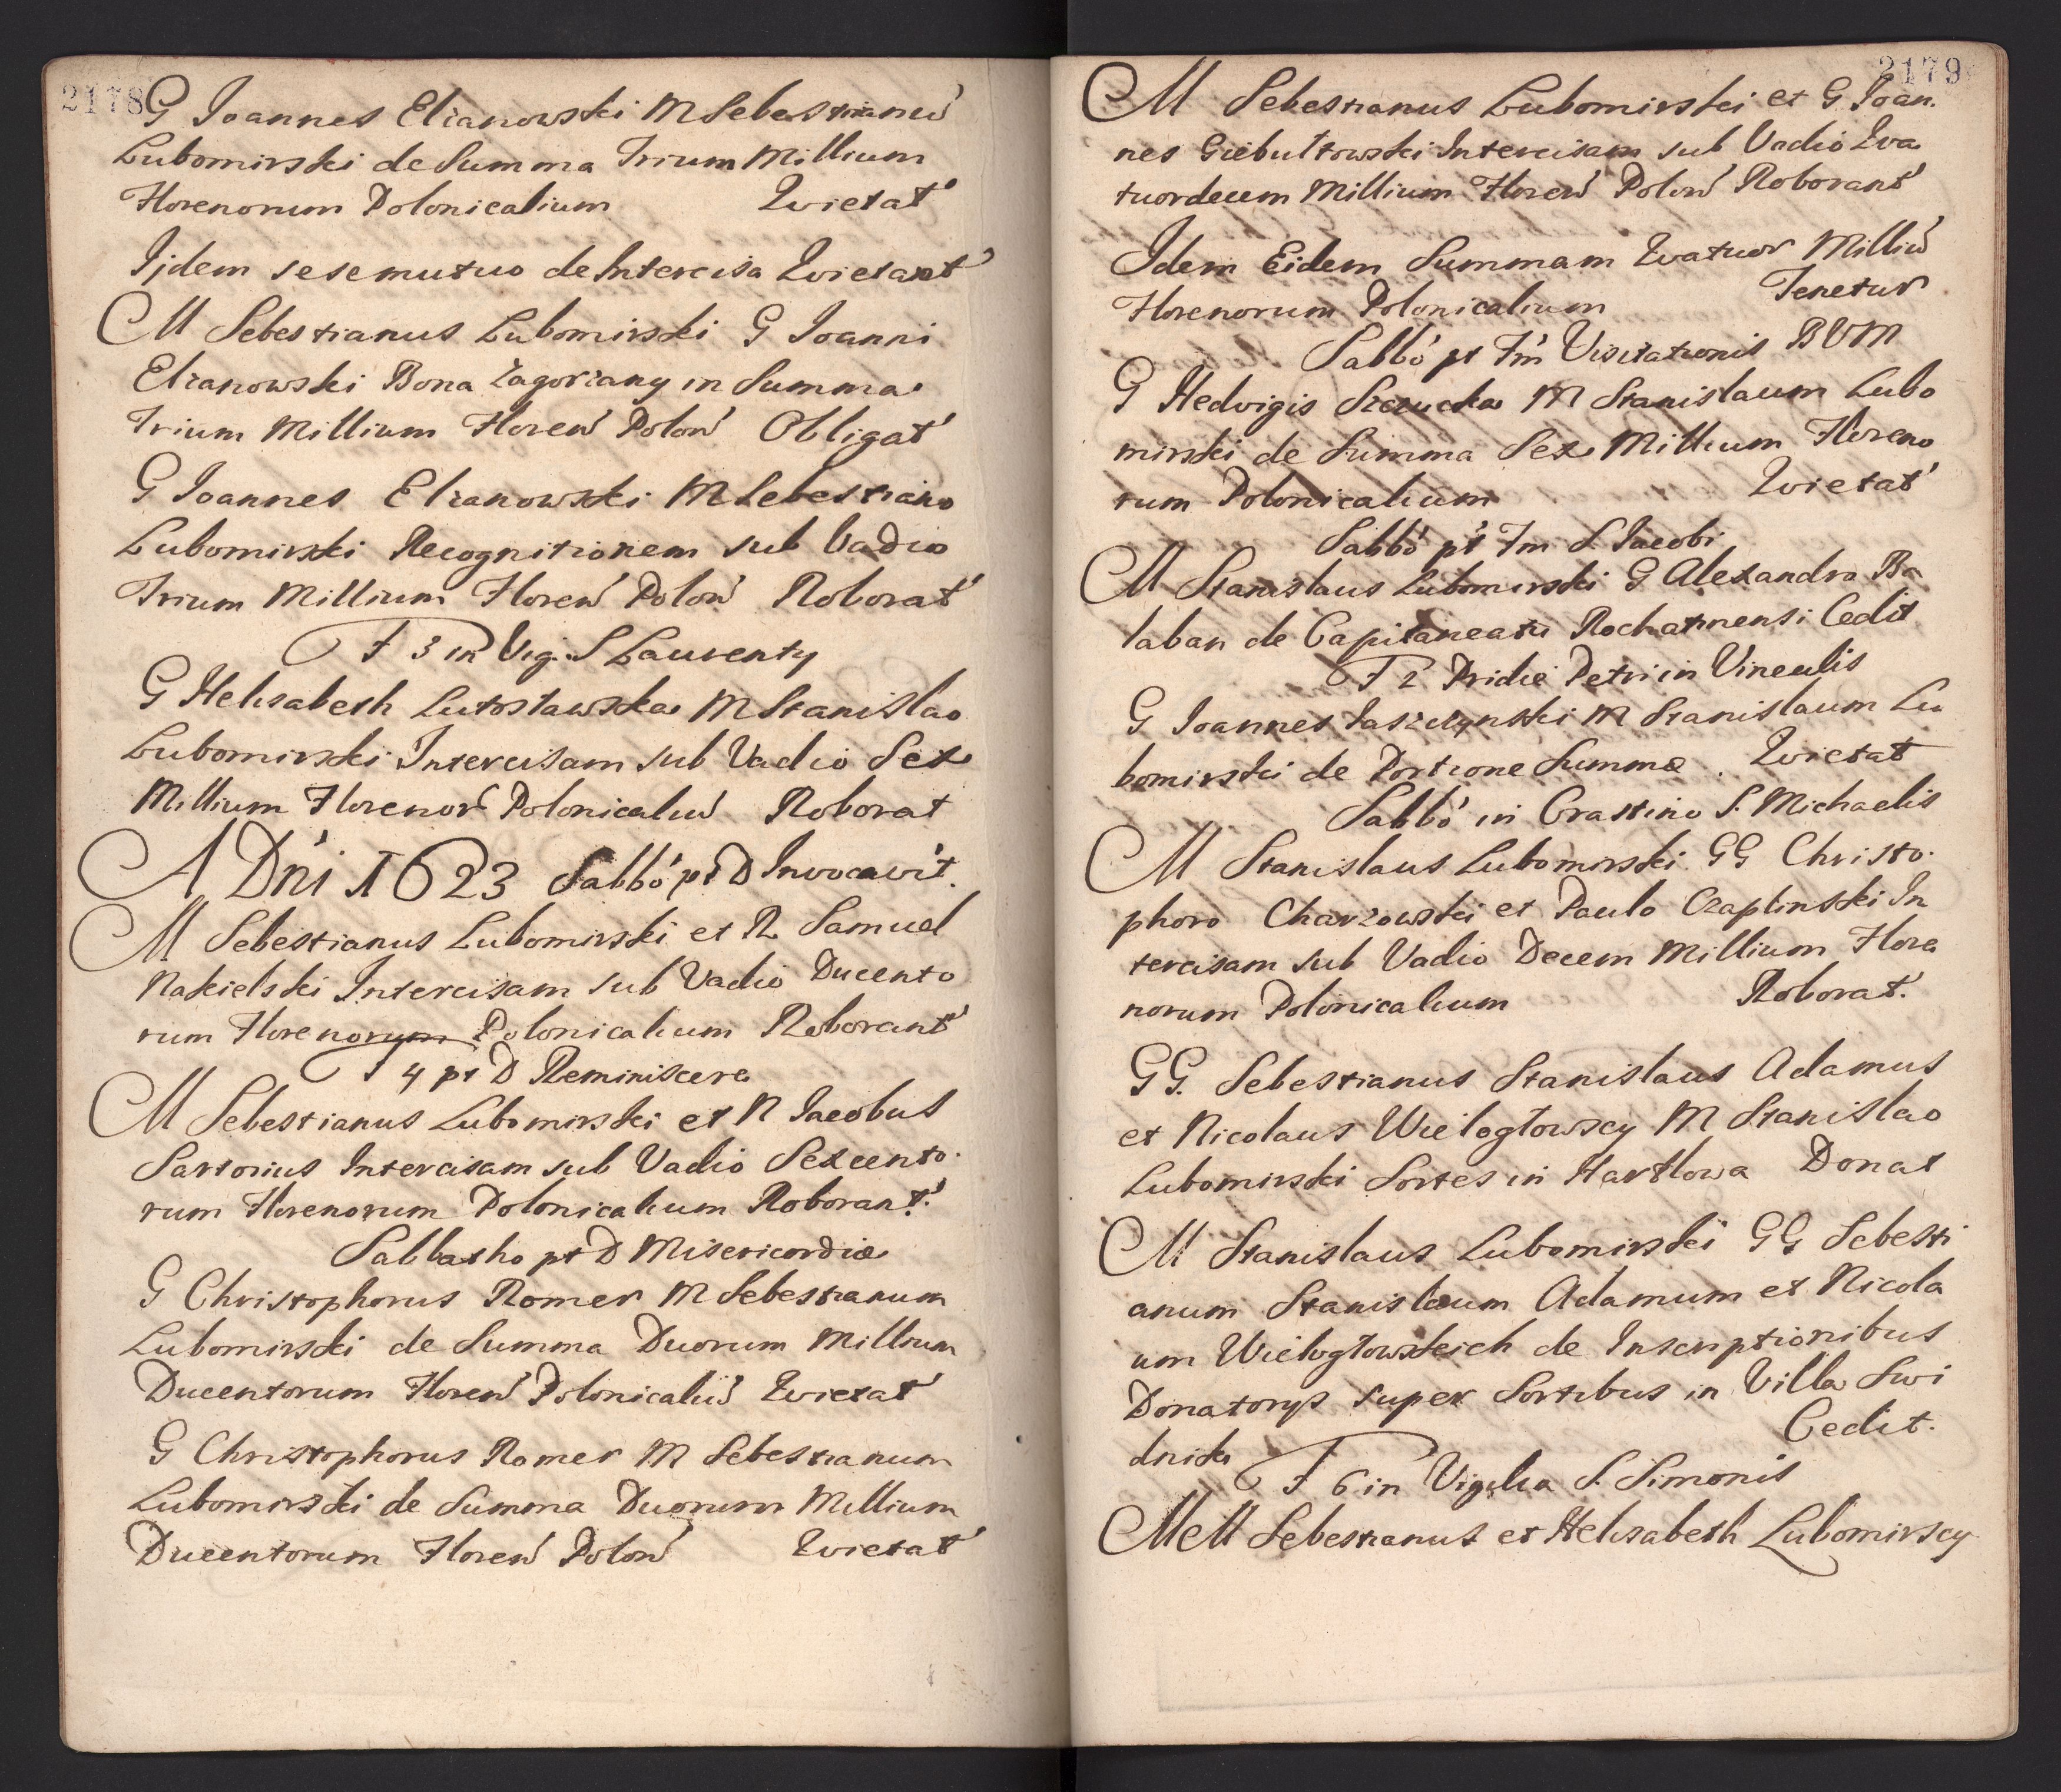 2178
G Joannes Elzanowski M Sebestianu
Lubomirski de Summa Trium Millium
Florenorum Polonicalium Quietat
Ijdem sese mutuo de Intercisa Quietant
M Sebestianus Lubomirski G Joanni
Elzanowski Bona Zagorzany in Summa
Trium Millium Floren Polon Obligat
G Joannes Elzanowski M Sebestiano
Lubomirski Recognitionem sub Vadio
Trium Millium Floren Polon Roborat
F 3 in Vig. S Laurenty
G Helisabeth Lutosławska M Stanislao
Lubomirski Intercisam sub Vadio Sex
Millium Florenor Polonicaliu Roborat
A Dni 1623 Sabbo pt D Invocavit.
M Sebestianus Lubomirski et R Samuel
Nakielski Intercisam sub Vadio Ducento
rum Florenorum Polonicalium Roborant
F 4 pt D Reminiscere
M Sebestianus Lubomirski et N Jacobus
Sartorius Intercisam sub Vadio Sexcento.
rum Florenorum Polonicalium Roborant.
Sabbatho pt D Misericordiæ
G Christophorus Romer M Sebestianum
Lubomirski de Summa Duorum Millium
Ducentorum Floren Polonicaliu Quietat
G Christophorus Romer M Sebestianum
Lubomirski de Summa Duorum Millium
Ducentorum Floren Polon Quietat
2179
M Sebestianus Lubomirski et G Joan.
nes Giebułtowski Intercisam sub Vadio Qva
tuordecem Millium Floren Polon Roborant
Idem Eidem Summam Qvatuor Milliu
Florenorum Polonicalium Tenetur
Sabbo pt Fm Visitationis BVM
G Hedvigis Szczucka M Stanislaum Lubo
mirski de Summa Sex Millium Floreno
rum Polonicalium Quietat
Sabbo pt Fm S Jacobi
M Stanislaus Lubomirski G Alexandro Ba
laban de Capitaneatu Rochatinensi Cedit
F 2 Pridie Petri in Vinculis
G Joannes Jaszczynski M Stanislaum Lu
bomirski de Portione Summæ. Quietat
Sabbo in Crastino S. Michaelis
M Stanislaus Lubomirski GG Christo.
phoro Charzowski et Paulo Czaplinski In
tercisam sub Vadio Decem Millium Flore
norum Polonicalium Roborat.
GG. Sebestianus Stanislaus Adamus
et Nicolaus Wielogłowscy M Stanislao
Lubomirski Sortes in Harklowa Donat
M Stanislaus Lubomirski GG Sebesti
anum Stanislaum Adamum et Nicola
um Wielogłowskich de Inscriptionibus
Donatorys super Sortibus in Villa Swi
dnik Cedit.
F 6 in Vigilia S. Simonis
MM Sebestianus et Helisabeth Lubomirscy